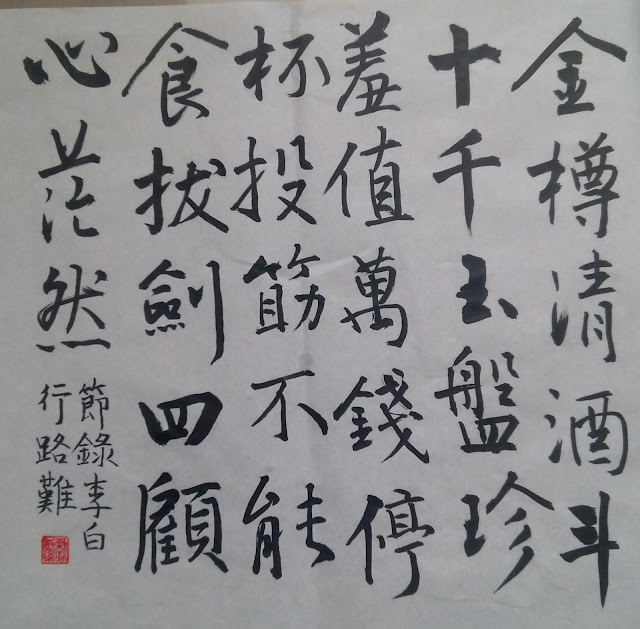 金樽清酒斗
十千玉盤珍
羞值萬錢停
杯投筯不能
食拔劍四顧
心茫然
節錄李白
行路難